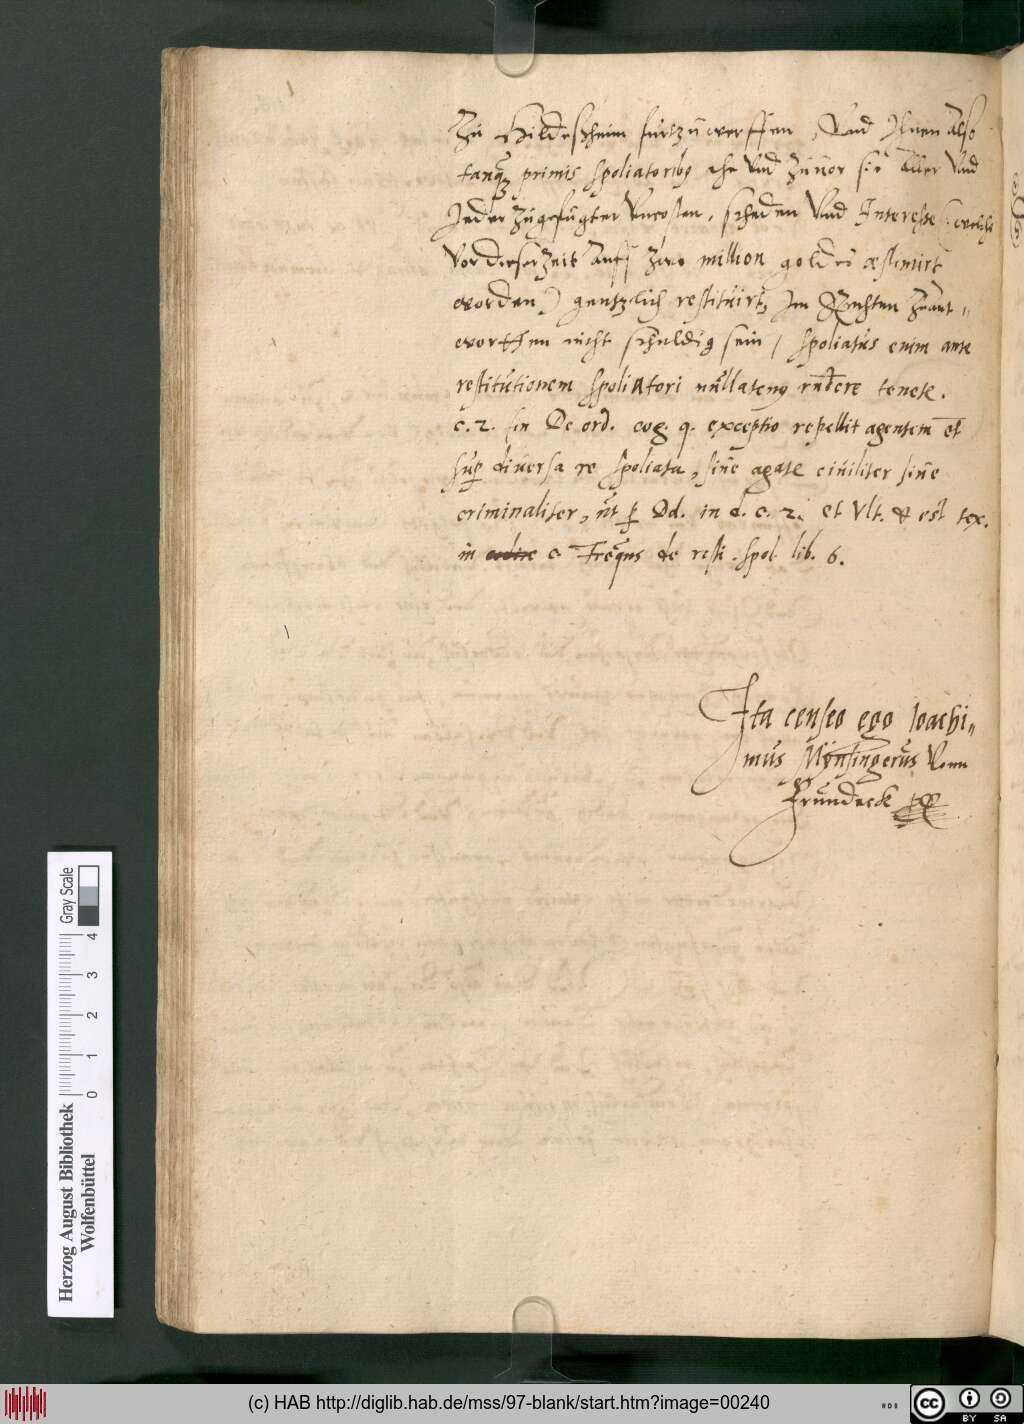 Zu Hildesheim fürzuwerffen, Und Ihnen also
tanq̃ primis spoliatoribꝯ ehe und zuuor sie aller und
Jeder zugefügter Uncosten, schaden und Interesse (: welchs
vor dieser Zeit auff zwo million goldes æstimirt
worden) gentzlich restituirt, Im Rechten zuant-
wortten nicht schuldig sein / spoliatus enim ante
restitutionem spoliatori nullatenꝯ rñdere tenetr.
c. 2. in De ord. cog. q. exceptio repellit agentem et
sup̱ diuersa re spoliata, siue agatr ciuiliter siue
criminaliter, ut ꝑ Dd. in d. c. 2. et Vlt. & est tex.
in c. Freq̃ns de resti. spol. lib. 6.
Ita censeo ego Ioachi-
mus Mynsingerus Vonn
Frundeck
Herzog August Bibliothek
Wolfenbüttel
0 1 2 3 4
Gray Scale
(c) HAB http://diglib.hab.de/mss/97-blank/start.htm?image=00240
HAB
cc BY SA